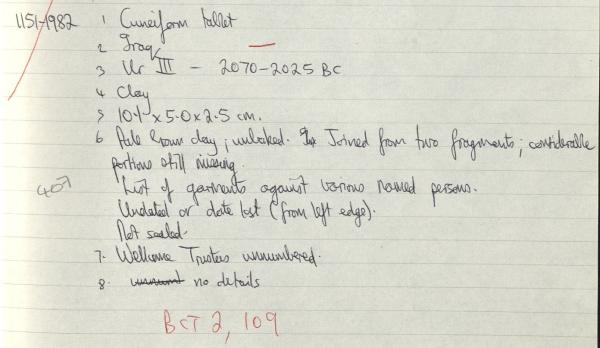 1151-1982 1 Cuneiform tablet
2 Iraq
3 Ur III - 2070-2025 BC
4 Clay
5 10.1 x 5.0 x 2.5 cm.
6 Pale brown clay; unbaked. Joined from two fragments; considerable
portions still missing.
407 List of garments against various named persons.
Undated or date lost (from left edge).
Not sealed.
7. Wellcome Trustees unnumbered.
8. no details
BCT 2, 109